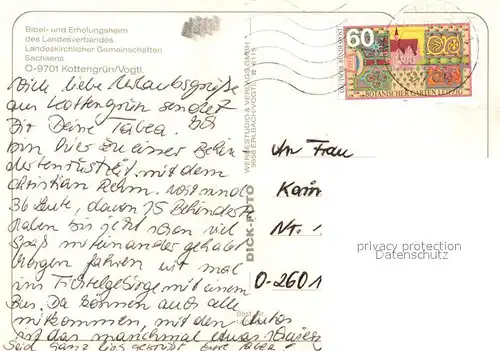 Bibel- und Erholungsheim
des Landesverbandes
Landeskirchlicher Gemeinschaften
Sachsens
O-9701 Kottengrün/Vogtl.
liebe Urlaubsgrüße
aus Kottengrün sendet
Dir Deine Tabea.
bin hier zu einer Behin
dertenrüstzeit mit dem
Christian Rehm. Wir sind
36 Leute, davon 15 Behinderte
haben bis jetzt schon viel
Spaß miteinander gehabt
Morgen fahren wir mal
ins Fichtelgebirge mit einem
Bus. Da können auch alle
mitkommen, mit den Autos
ist das manchmal etwas
Seid ganz lieb gegrüßt Eure Tabea!
WERBESTUDIO & VERLAGS GMBH
9658 ERLBACH/VOGTL.
DICK-FOTO
Best.
60
DEUTSCHE BUNDESPOST
BOTANISCHER GARTEN LEIPZIG
An Frau
Karin
Nr. 1
O-2601
privacy protection
Datenschutz